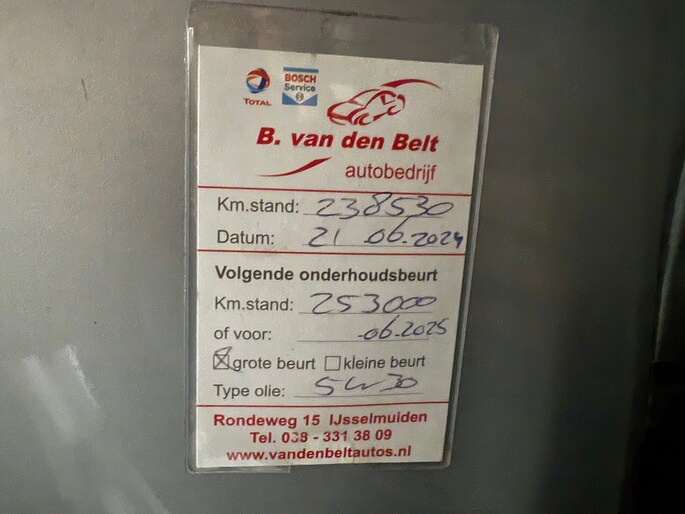 TOTAL
BOSCH
Service
B. van den Belt
autobedrijf
Km.stand: 238530
Datum: 21 .06.2024
Volgende onderhoudsbeurt
Km.stand: 253000
of voor: .06.2025
grote beurt kleine beurt
Type olie: 5W30
Rondeweg 15 IJsselmuiden
Tel. 038 - 331 38 09
www.vandenbeltautos.nl